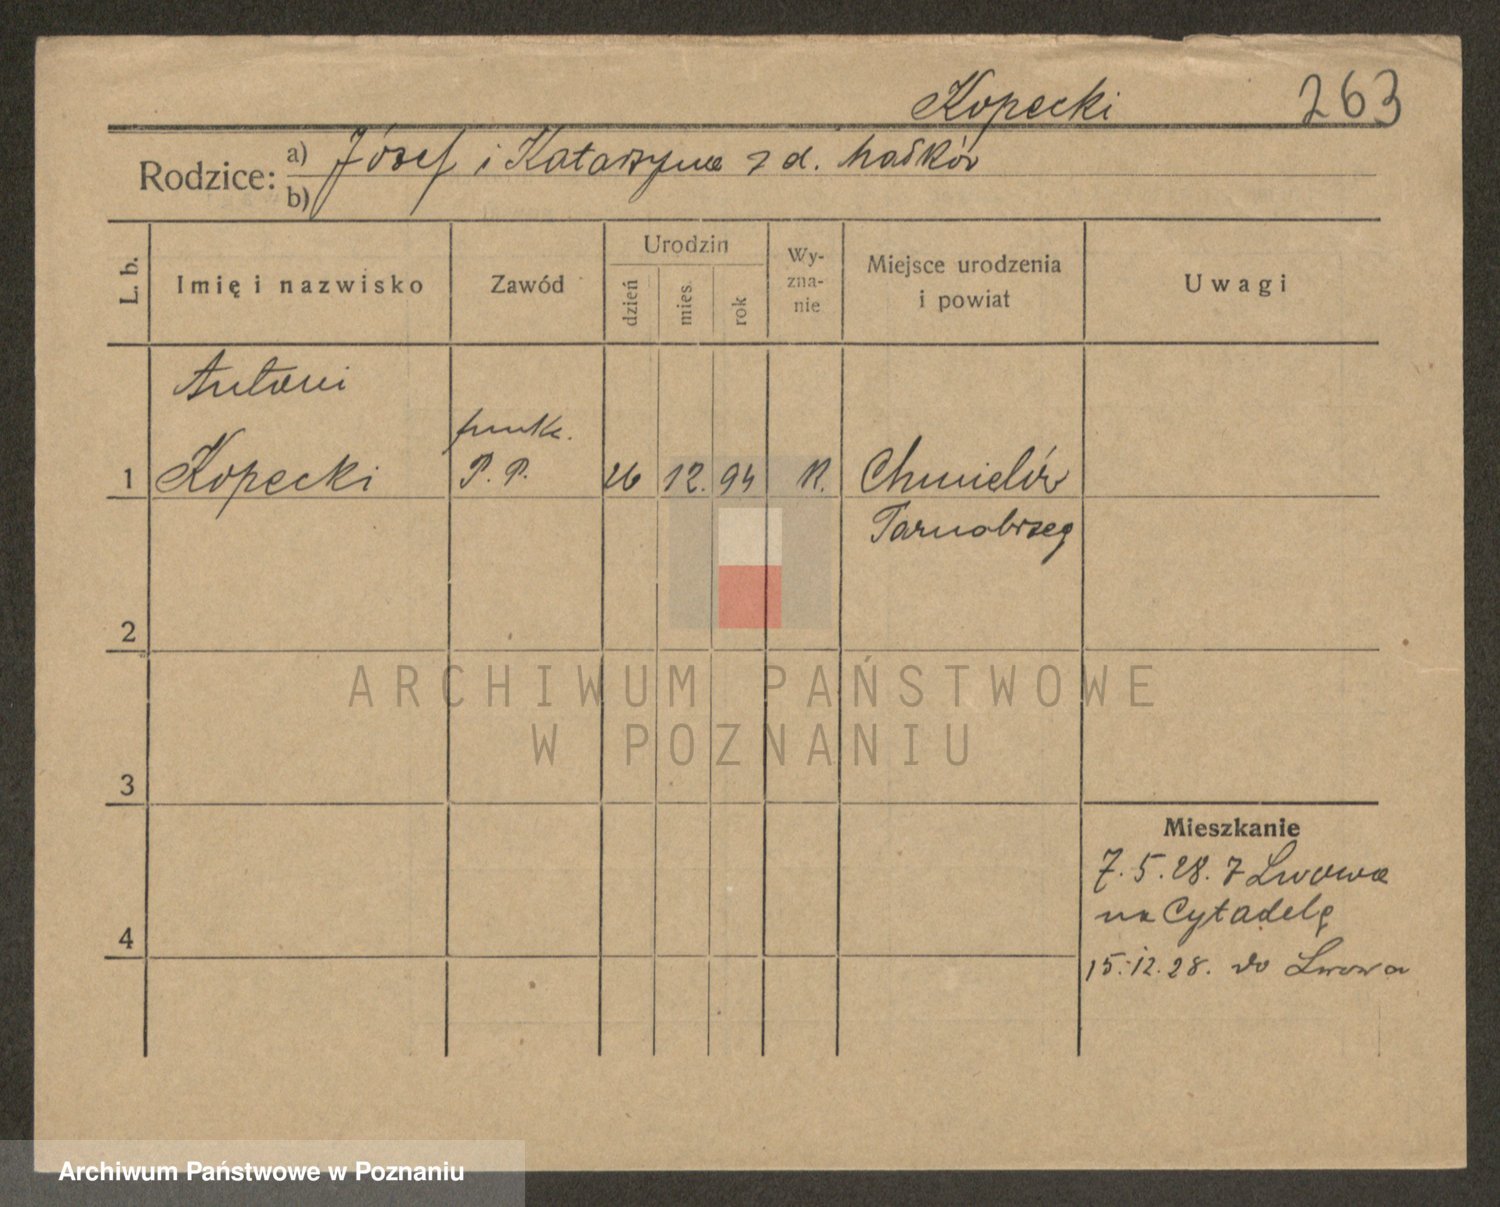 Kopecki 263
Rodzice: a) Józef i Katarzyna z d.
b)
L. b.
Imię i nazwisko
Zawód
Urodzin
dzień
mies.
rok
Wy-
zna-
nie
Miejsce urodzenia
i powiat
Uwagi
Antoni
funkc.
1 Kopecki P. P. 26 12. 94 R. Chmielów
Tarnobrzeg
2
ARCHIWUM PAŃSTWOWE
W POZNANIU
3
Mieszkanie
7. 5. 28. z Lwowa
na Cytadelę
4
15.12.28. do Lwowa
Archiwum Państwowe w Poznaniu